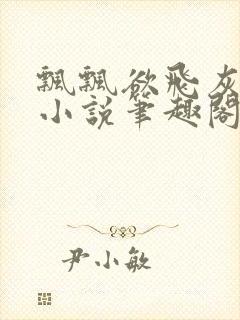 飄飄欲飛灰
小說筆趣閣
尹小敏